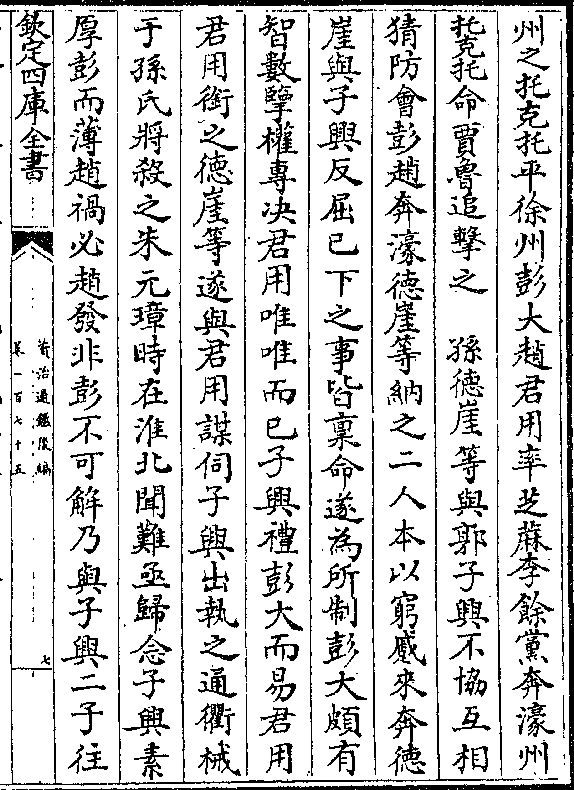 州之托克托平徐州彭大趙君用率芝蔴李餘黨奔濠州
托克托命賈魯追擊之　孫德崖等與郭子興不協互相
猜防會彭趙奔濠德崖等納之二人本以窮蹙來奔德
崖與子興反屈已下之事皆稟命遂為所制彭大頗有
智數擥權專决君用唯唯而已子興禮彭大而易君用
君用銜之德崖等遂與君用謀伺子興出執之通衢械
于孫氏將殺之朱元璋時在淮北聞難亟歸念子興素
厚彭而薄趙禍必趙發非彭不可解乃與子興二子往
欽定四庫全書
資治通鑑後編
卷一百七十五
七